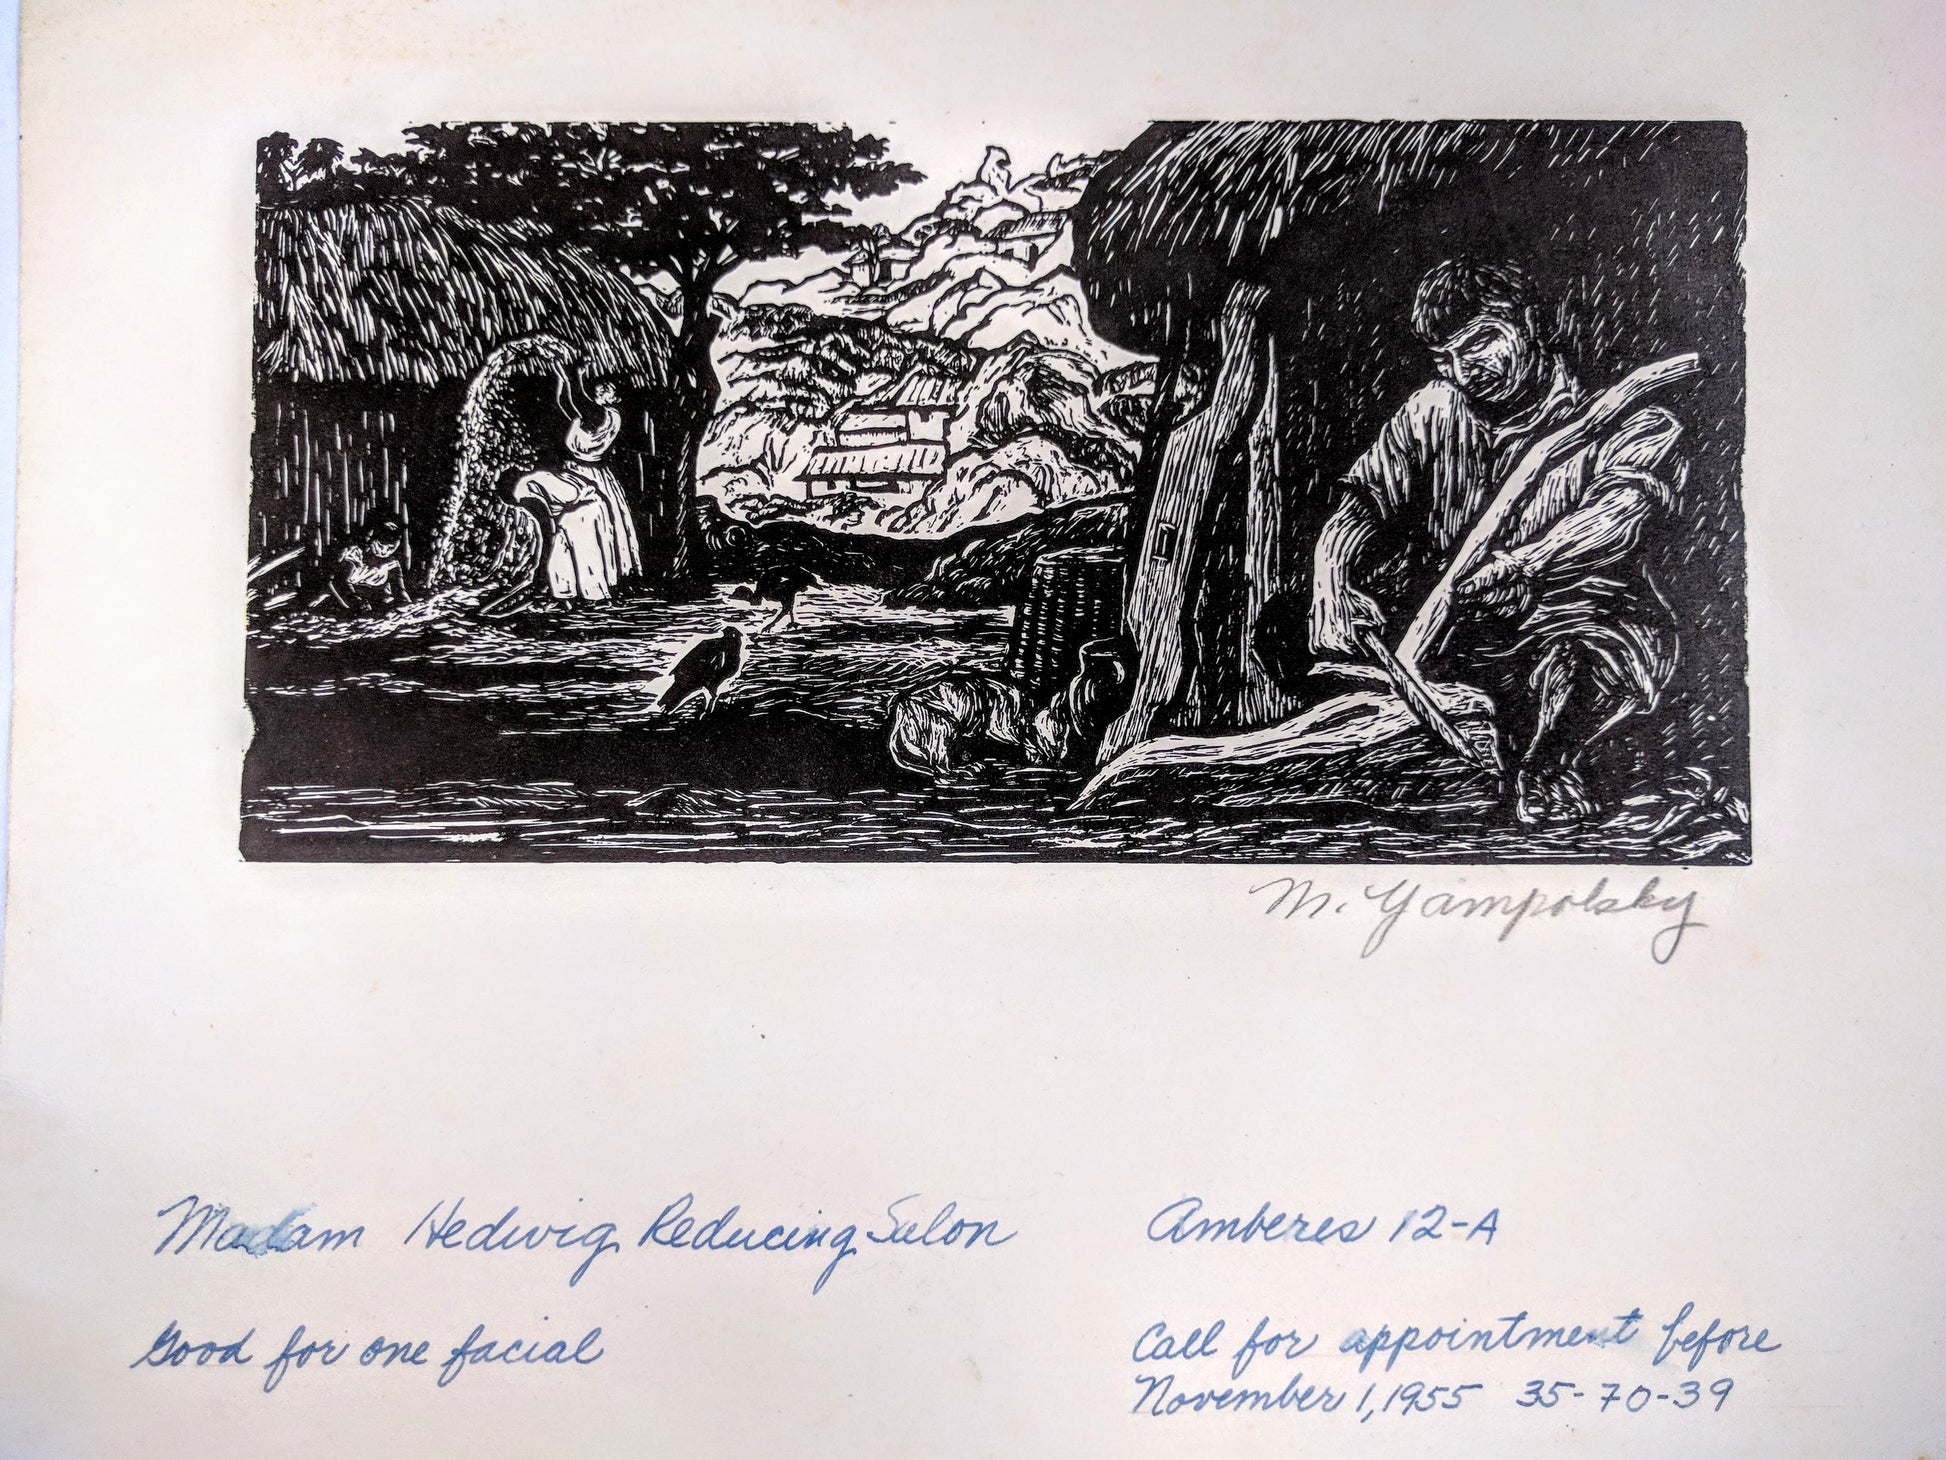 M. Yampolsky
Madam Hedwig Reducing Salon
Amberes 12-A
Good for one facial
Call for appointment before
November 1, 1955 35-70-39